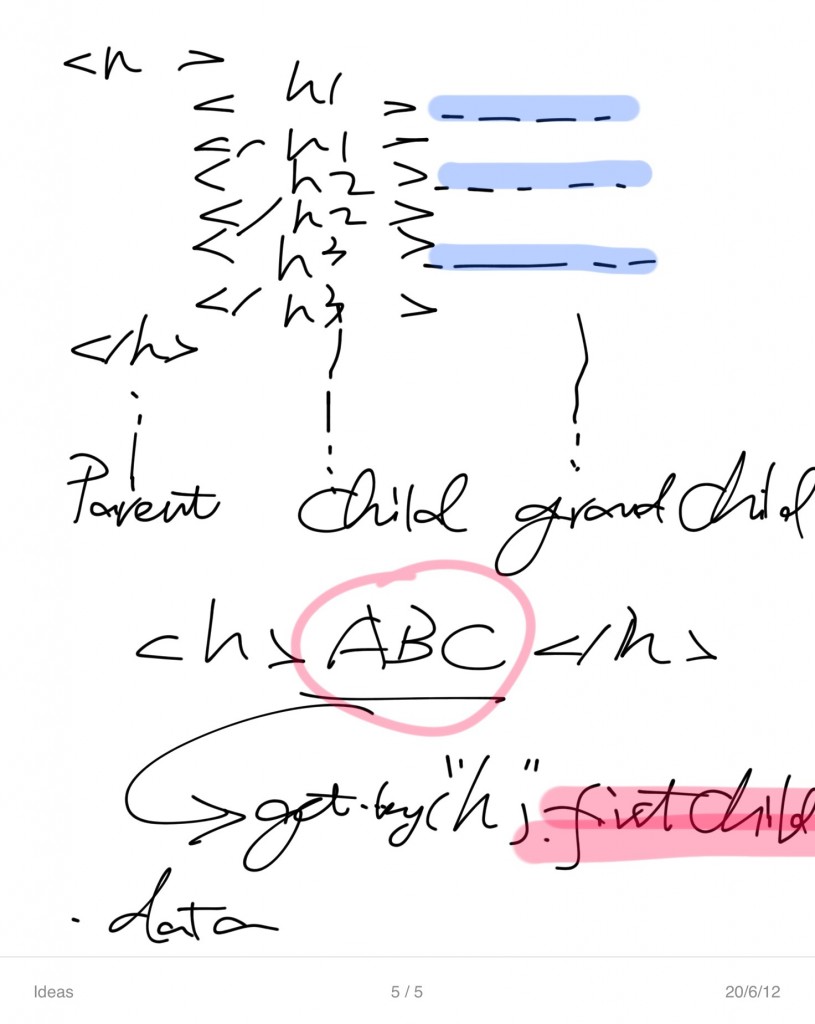 <h >
< h1 >
</ h1 >
< h2 >
</ h2 >
< h3 >
</ h3 >
</h>
Parent child grand child
<h> ABC </h>
get.by("h").firstChild
. data
Ideas 5 / 5 20/6/12